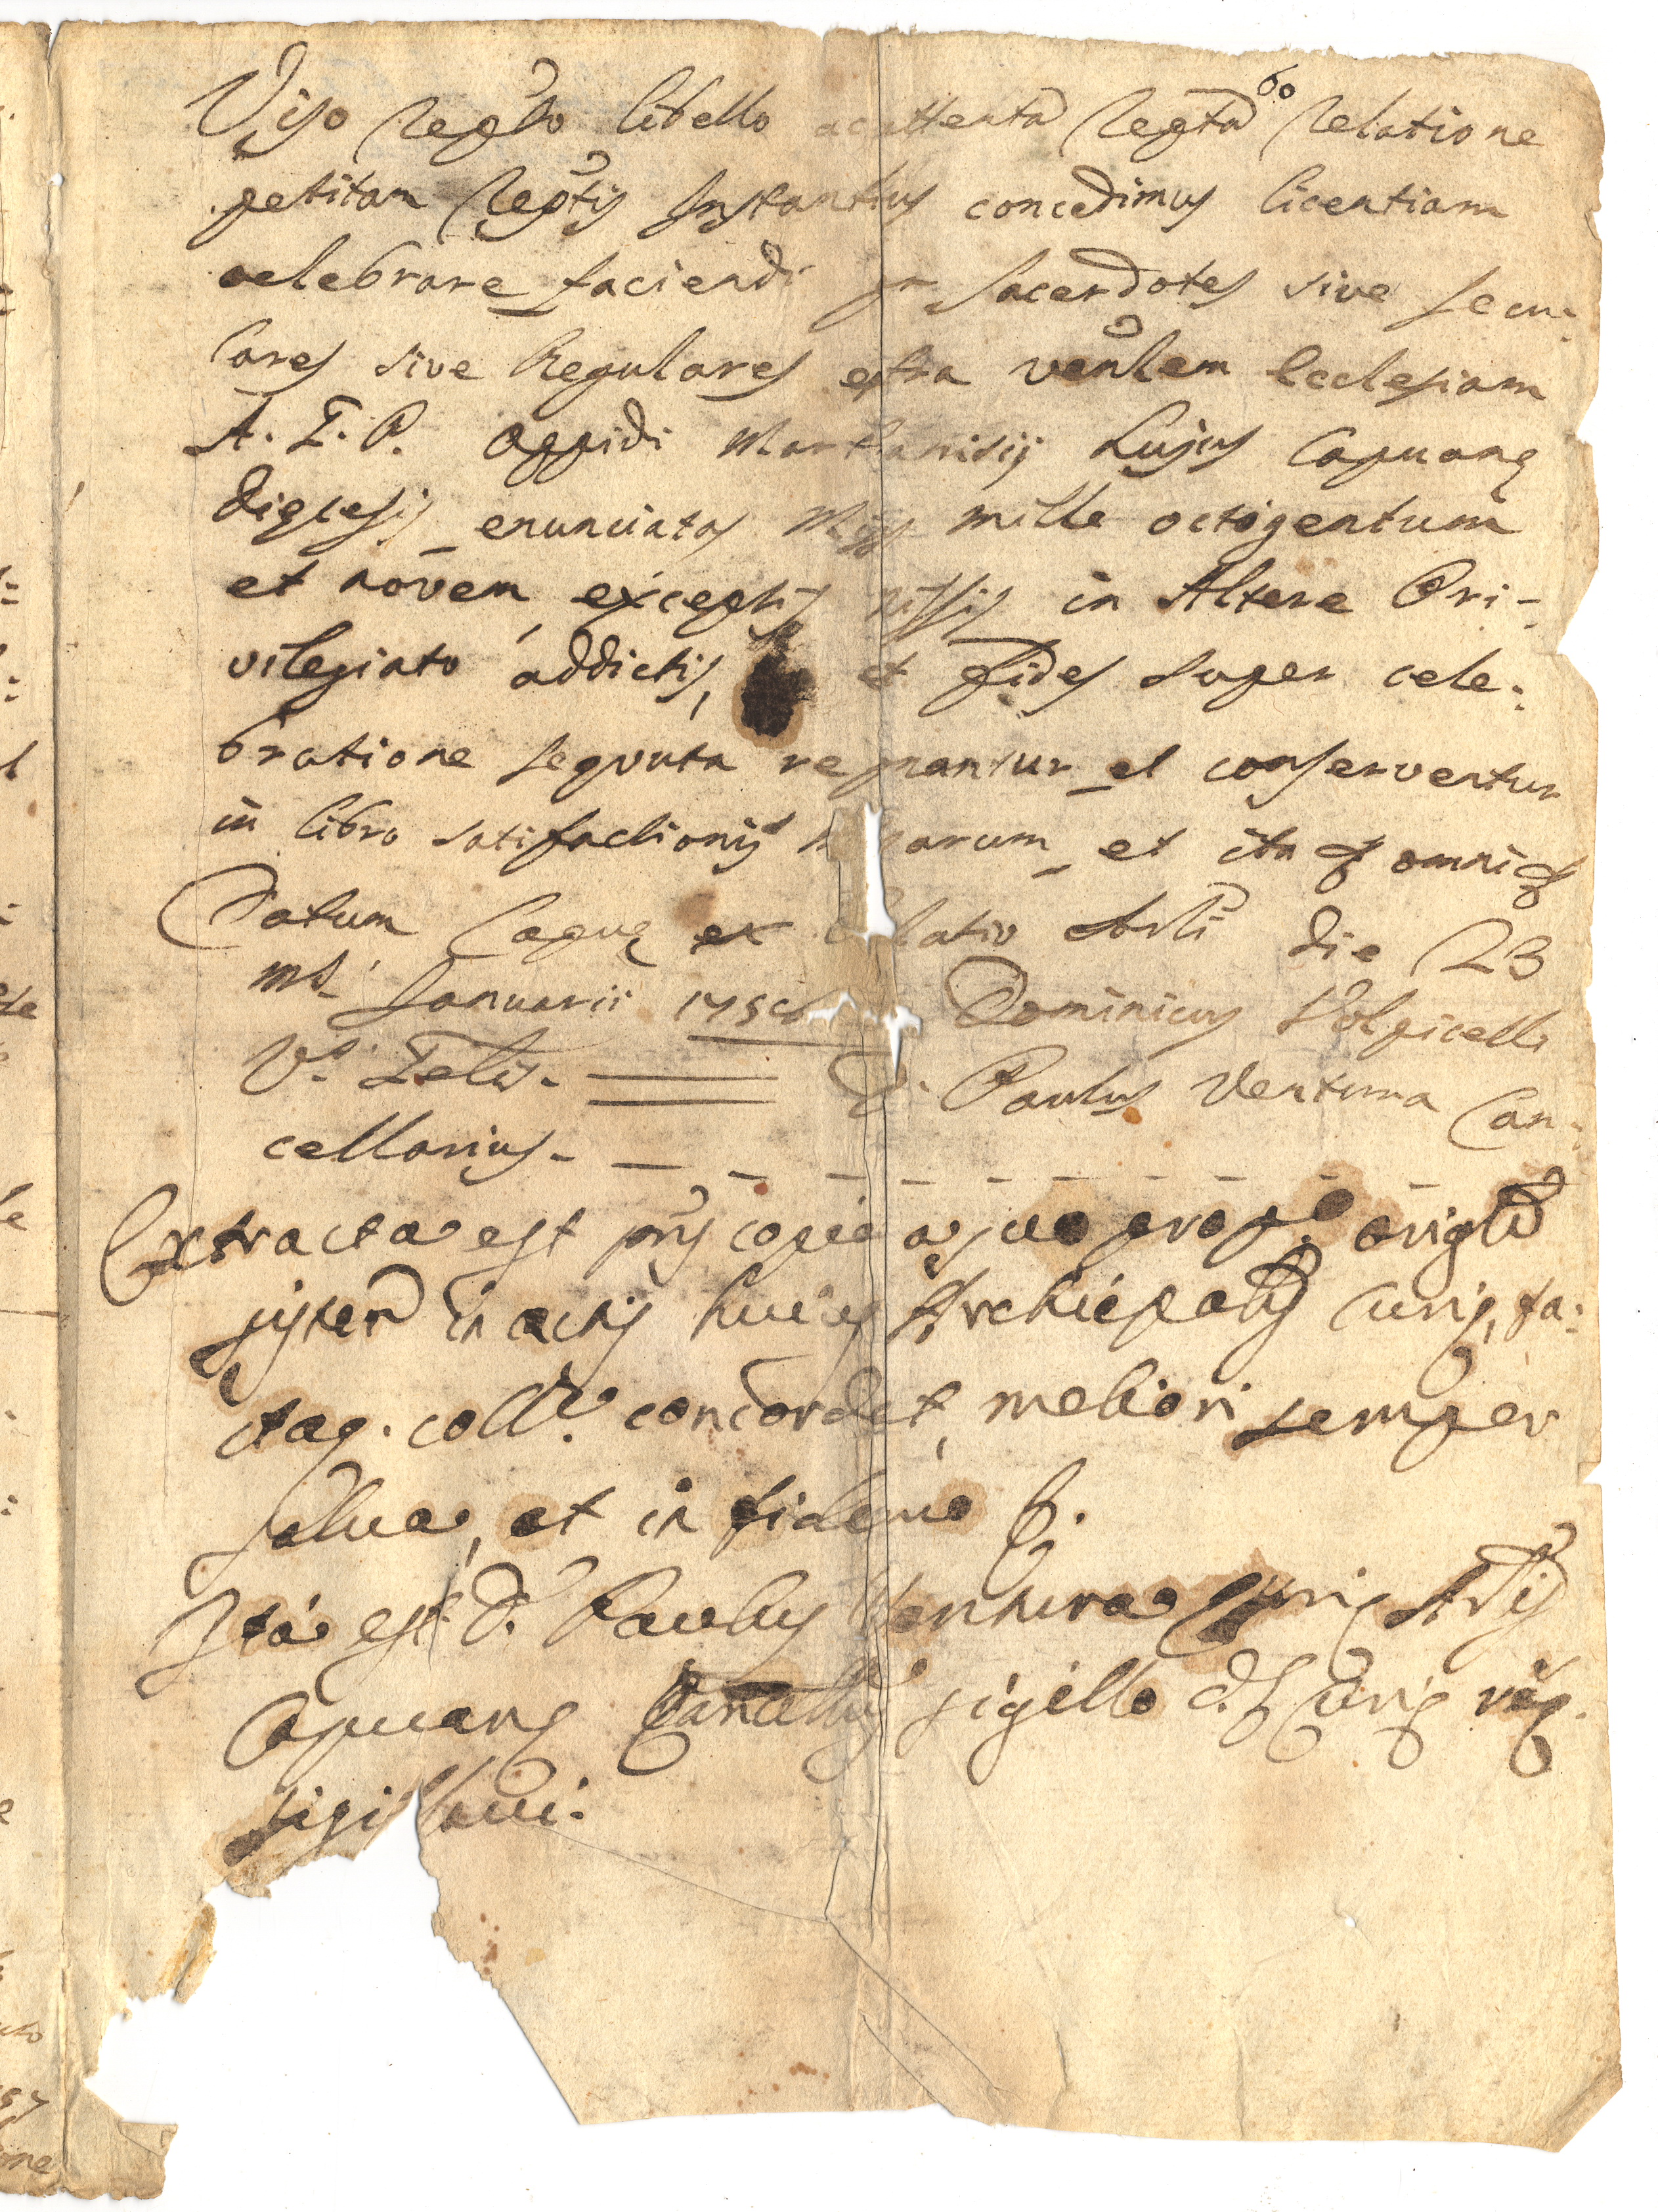 60
Viso retro libello ac attenta retta relatione
petitam reptis Instantiis concedimus licentiam
celebrare faciendi per sacerdotes sive secu:
lares sive Regulares extra venlem Ecclesiam
A. G. P. oppidi Martianisij hujus Capuanę
dięcesis enunciatas missas mille octigentum
et novem exceptis missis in Altere Pri-
vilegiato addictis, et fides super cele:
bratione sequuta et conserventur
in libro satifactionis et ita omni
Datum Capuę ex Palatio Arli die 23
ms. Januarii Dominicus Volpicelli
Vs. Glis. D. Paulus Ventura Can:
cellarius.
Extracta est pns copia a suo prop.o origli
sisten in actis huius Archiepalis Curię, fa:
ctaq. collne. concordat, meliori semper
salva, et in fidem
Ita est D. Paulus Ventura Curię Arlis
Capuanę Cancellus sigillo d. Curię
sigillavi.